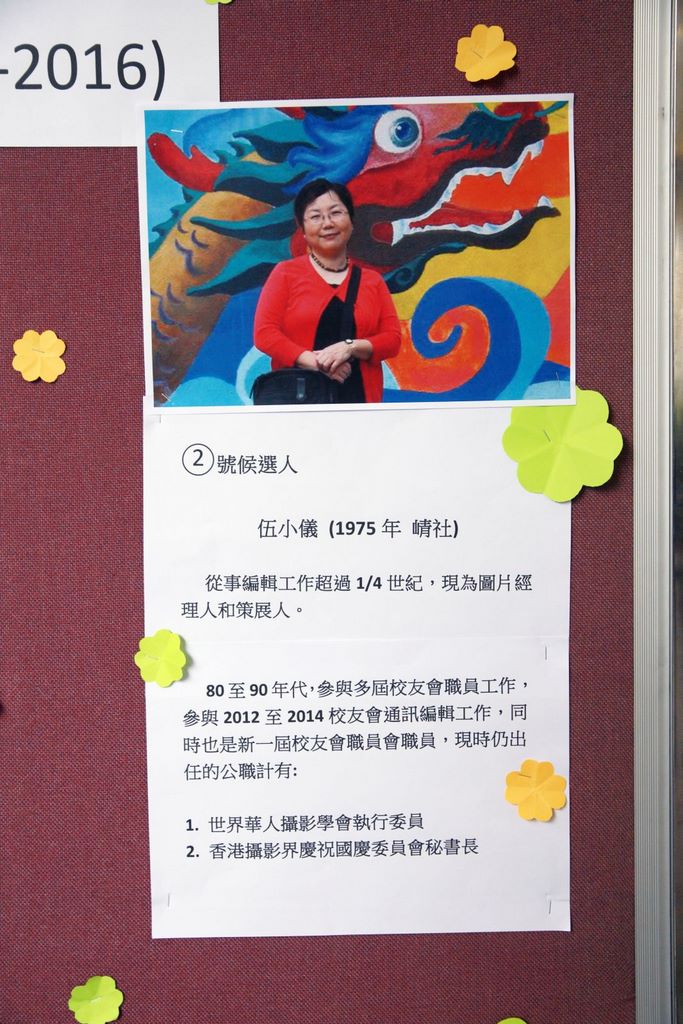 -2016)
② 號候選人
伍小儀 (1975 年 皘社)
從事編輯工作超過 1/4 世紀，現為圖片經
理人和策展人。
80 至 90 年代，參與多屆校友會職員工作，
參與 2012 至 2014 校友會通訊編輯工作，同
時也是新一屆校友會職員會職員，現時仍出
任的公職計有:
1. 世界華人攝影學會執行委員
2. 香港攝影界慶祝國慶委員會秘書長